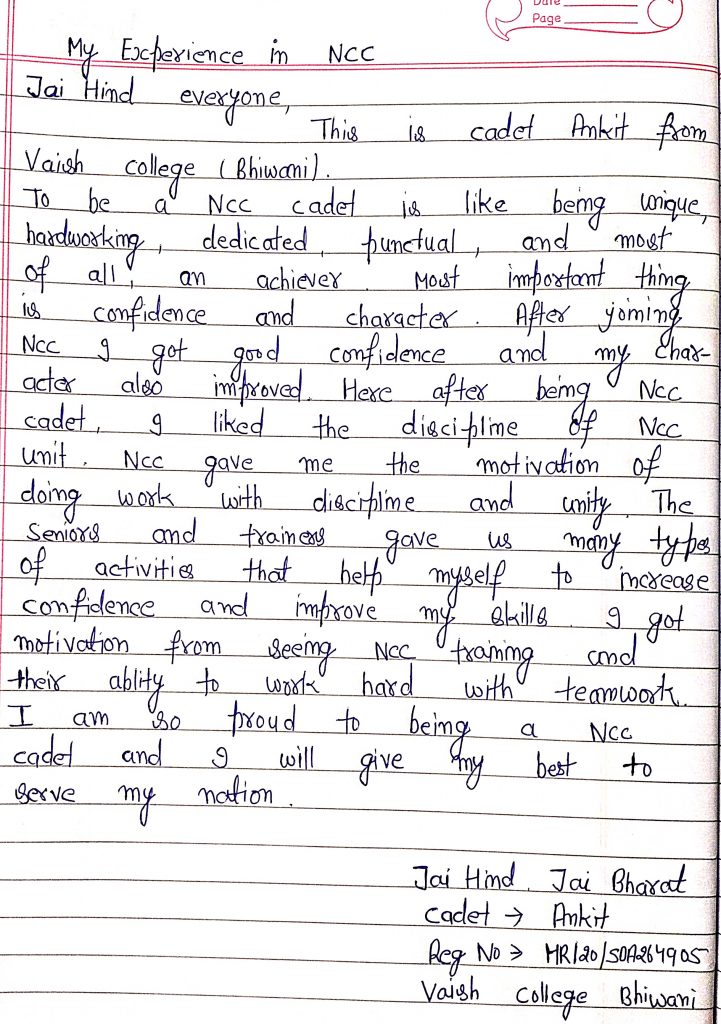 Date
Page
My Experience in NCC
Jai Hind everyone,
This is cadet Ankit from
Vaish college (Bhiwani).
To be a NCC cadet is like being unique,
hardworking, dedicated, punctual, and most
of all, an achiever. Most important thing
is confidence and character. After joining
NCC I got good confidence and my char-
acter also improved. Here after being NCC
cadet, I liked the discipline of NCC
unit. NCC gave me the motivation of
doing work with discipline and unity. The
Seniors and trainers gave us many types
of activities that help myself to increase
confidence and improve my skills. I got
motivation from seeing NCC training and
their ablity to work hard with teamwork.
I am so proud to being a NCC
cadet and I will give my best to
serve my nation.
Jai Hind. Jai Bharat
Cadet → Ankit
Reg No → HR/20/SDA264905
Vaish College Bhiwani